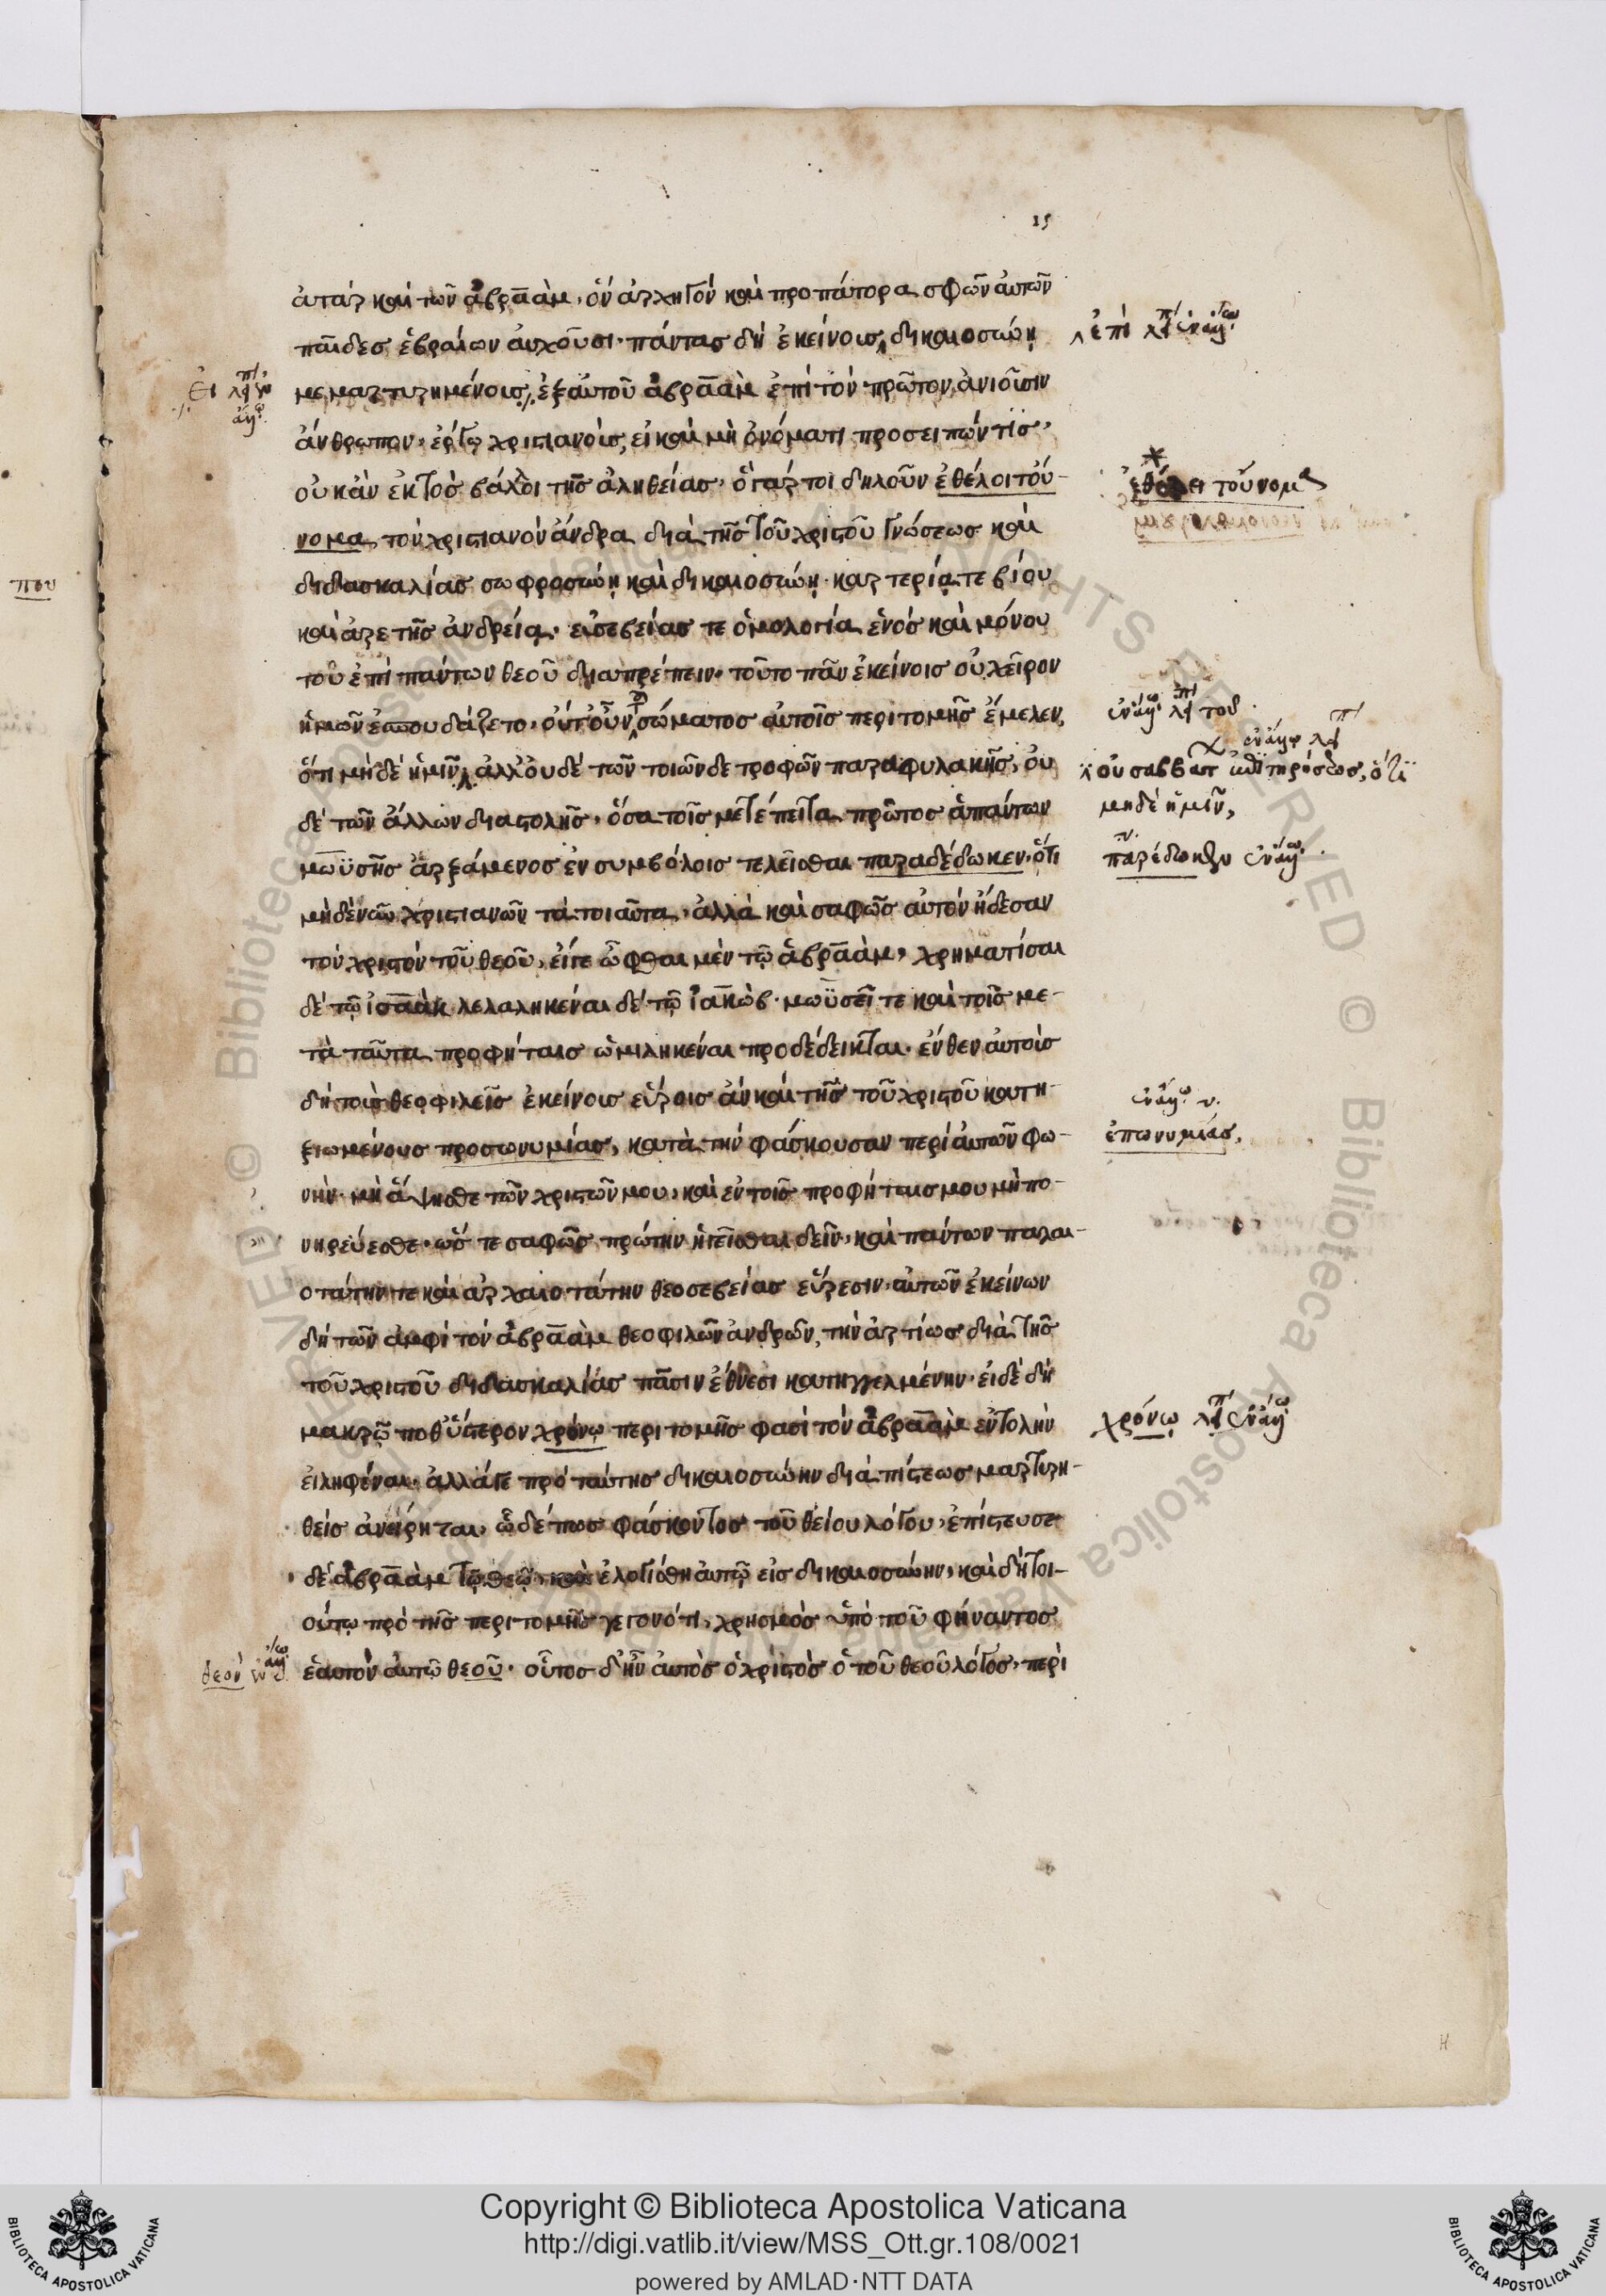 15
ἀτὰρ καὶ τῶν ἀβραὰμ, ὃν ἀρχηγὸν καὶ προπάτορα σφῶν αὐτῶν
παῖδες ἑβραίων αὐχοῦσι· πάντας δὴ ἐκείνοις δικαιοσύνῃ
ἐπὶ
μεμαρτυρημένοις, ἐξ αὐτοῦ ἀβραὰμ ἐπὶ τὸν πρῶτον ἀνιοῦσιν
ἄνθρωπον, ἔργῳ χριστιανοὺς, εἰ καὶ μὴ ὀνόματι προσειπών τις,
οὐκ ἂν ἐκτὸς βάλοι τῆς ἀληθείας, ὃ γάρ τοι δηλοῦν ἐθέλοι τοὔ-
ἐθέλει τοὔνομα
νομα, τὸν χριστιανὸν ἄνδρα διὰ τῆς τοῦ χριστοῦ γνώσεως καὶ
διδασκαλίας σωφροσύνῃ καὶ δικαιοσύνῃ· καρτερίᾳ τε βίου
καὶ ἀρετῆς ἀνδρείᾳ· εὐσεβείας τε ὁμολογίᾳ ἑνὸς καὶ μόνου
τοῦ ἐπὶ πάντων θεοῦ διαπρέπειν· τοῦτο πᾶν ἐκείνοις οὐ χεῖρον
ἡμῶν ἐσπουδάζετο· οὔτ' οὖν σώματος αὐτοῖς περιτομῆς ἔμελεν,
ὅτι μὴ δὲ ἡμῖν, ἀλλ' οὐδὲ τῶν τοιῶνδε τροφῶν παραφυλακῆς, οὐ
οὐ σαββάτων ἐπιτηρήσεως, ὅτι
δὲ τῶν ἄλλων διαστολῆς, ὅσα τοῖς μετέπειτα πρῶτος ἁπάντων
μηδὲ ἡμῖν,
μωϋσῆς ἀρξάμενος ἐν συμβόλοις τελεῖσθαι παραδέδωκεν· ὅτι
παρέδωκεν
μὴδὲ νῦν χριστιανῶν τὰ τοιαῦτα, ἀλλὰ καὶ σαφῶς αὐτὸν ᾔδεσαν
τὸν χριστὸν τοῦ θεοῦ, εἴγε ὦφθαι μὲν τῷ ἀβραὰμ, χρηματίσαι
δὲ τῷ ἰσαὰκ λελαληκέναι δὲ τῷ ἰακὼβ· μωϋσεῖ τε καὶ τοῖς με-
τὰ ταῦτα προφήταις ὡμιληκέναι προδέδεικται· ἔνθεν αὐτοὺς
δὴ τοὺς θεοφιλεῖς ἐκείνοις εὕροις ἂν καὶ τῆς τοῦ χριστοῦ κατη-
ξιωμένους προσωνυμίας, κατὰ τὴν φάσκουσαν περὶ αὐτῶν φω-
ἐπωνυμίας,
νὴν· μὴ ἅψησθε τῶν χριστῶν μου, καὶ ἐν τοῖς προφήταις μου μὴ πο-
νηρεύεσθε· ὥς τε σαφῶς πρώτην ἡγεῖσθαι δεῖν, καὶ πάντων παλαι-
οτάτην τε καὶ ἀρχαιοτάτην θεοσεβείας εὕρεσιν· αὐτῶν ἐκείνων
δὴ τῶν ἀμφὶ τὸν ἀβραὰμ θεοφιλῶν ἀνδρῶν, τὴν ἀρτίως διὰ τῆς
τοῦ χριστοῦ διδασκαλίας πᾶσιν ἔθνεσι κατηγγελμένην· εἰ δὲ δὴ
μακρῷ ποθ' ὕστερον χρόνῳ περιτομῆς φασὶ τὸν ἀβραὰμ ἐντολὴν
χρόνῳ
εἰληφέναι, ἀλλά γε πρὸ ταύτης δικαιοσύνην διὰ πίστεως μαρτυρη-
θεὶς ἀνείρηται, ὧδέ πως φάσκοντος τοῦ θείου λόγου, ἐπίστευσε
δὲ ἀβραὰμ τῷ θεῷ, καὶ ἐλογίσθη αὐτῷ εἰς δικαιοσύνην, καὶ δὴ τοι-
ούτῳ πρὸ τῆς περιτομῆς γεγονότι, χρησμὸς ὑπὸ τοῦ φήναντος
ἑαυτὸν αὐτῷ θεοῦ· οὗτος δ' ἦν αὐτὸς ὁ χριστὸς ὁ τοῦ θεοῦ λόγος, περὶ
θεοῦ
Copyright © Biblioteca Apostolica Vaticana
http://digi.vatlib.it/view/MSS_Ott.gr.108/0021
powered by AMLAD·NTT DATA
BIBLIOTECA APOSTOLICA VATICANA
BIBLIOTECA APOSTOLICA VATICANA